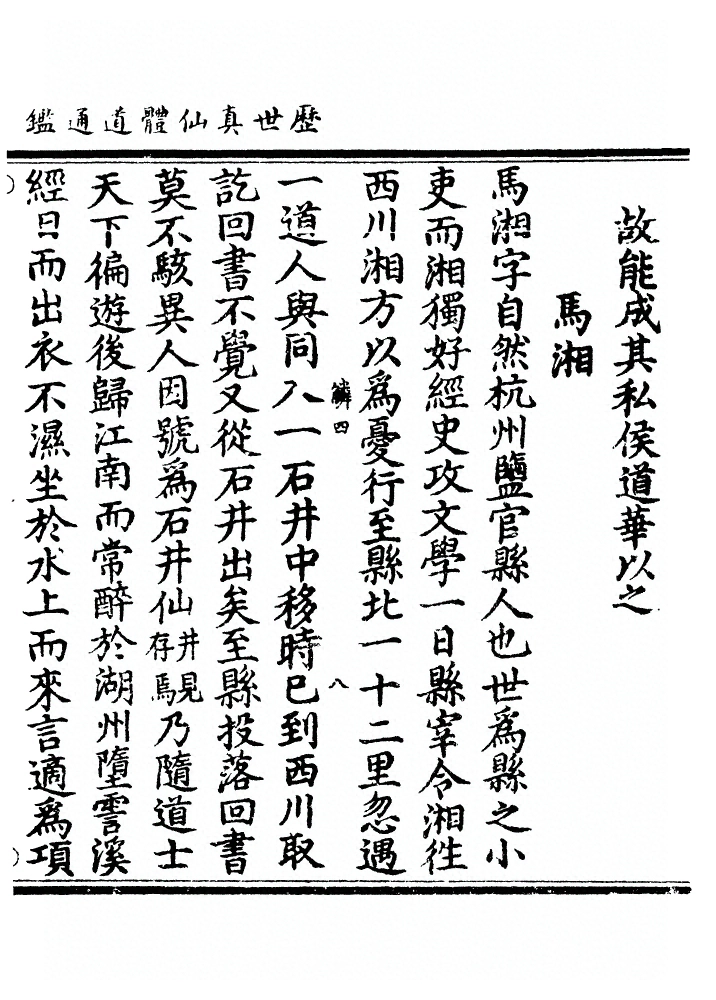 歷世真仙體道通鑑
故能成其私侯道華以之
馬湘
馬湘字自然杭州鹽官縣人也世爲縣之小
吏而湘獨好經史攻文學一日縣宰令湘徃
西川湘方以爲憂行至縣北一十二里忽遇
鱗四
八
一道人與同入一石井中移時已到西川取
訖回書不覺又從石井出矣至縣投落回書
莫不駭異人因號爲石井仙井見存焉乃隨道士
天下徧遊後歸江南而常醉於湖州墮霅溪
經日而出衣不濕坐於水上而來言適爲項